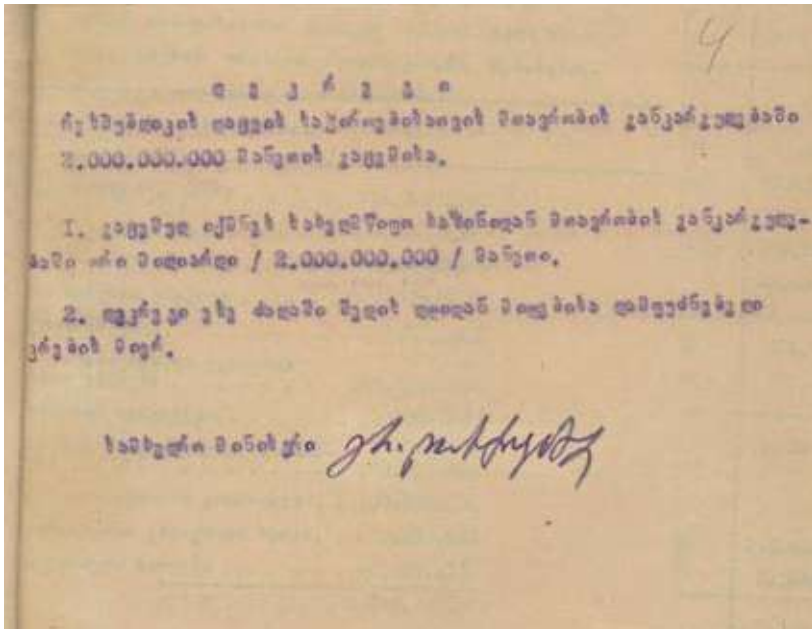 4
დ ე კ რ ე ტ ი
რესპუბლიკის დაცვის საჭიროებისათვის მთავრობის განკარგულებაში
2.000.000.000 მანეთის გაცემისა.
I. გაცემულ იქმნეს სახელმწიფო ხაზინიდან მთავრობის განკარგულ-
ბაში ორი მილიარდი / 2.000.000.000 / მანეთი.
2. დეკრეტი ესე ძალაში შედის დღიდან მიღებისა დამფუძნებელი
კრების მიერ.
სამხედრო მინისტრი